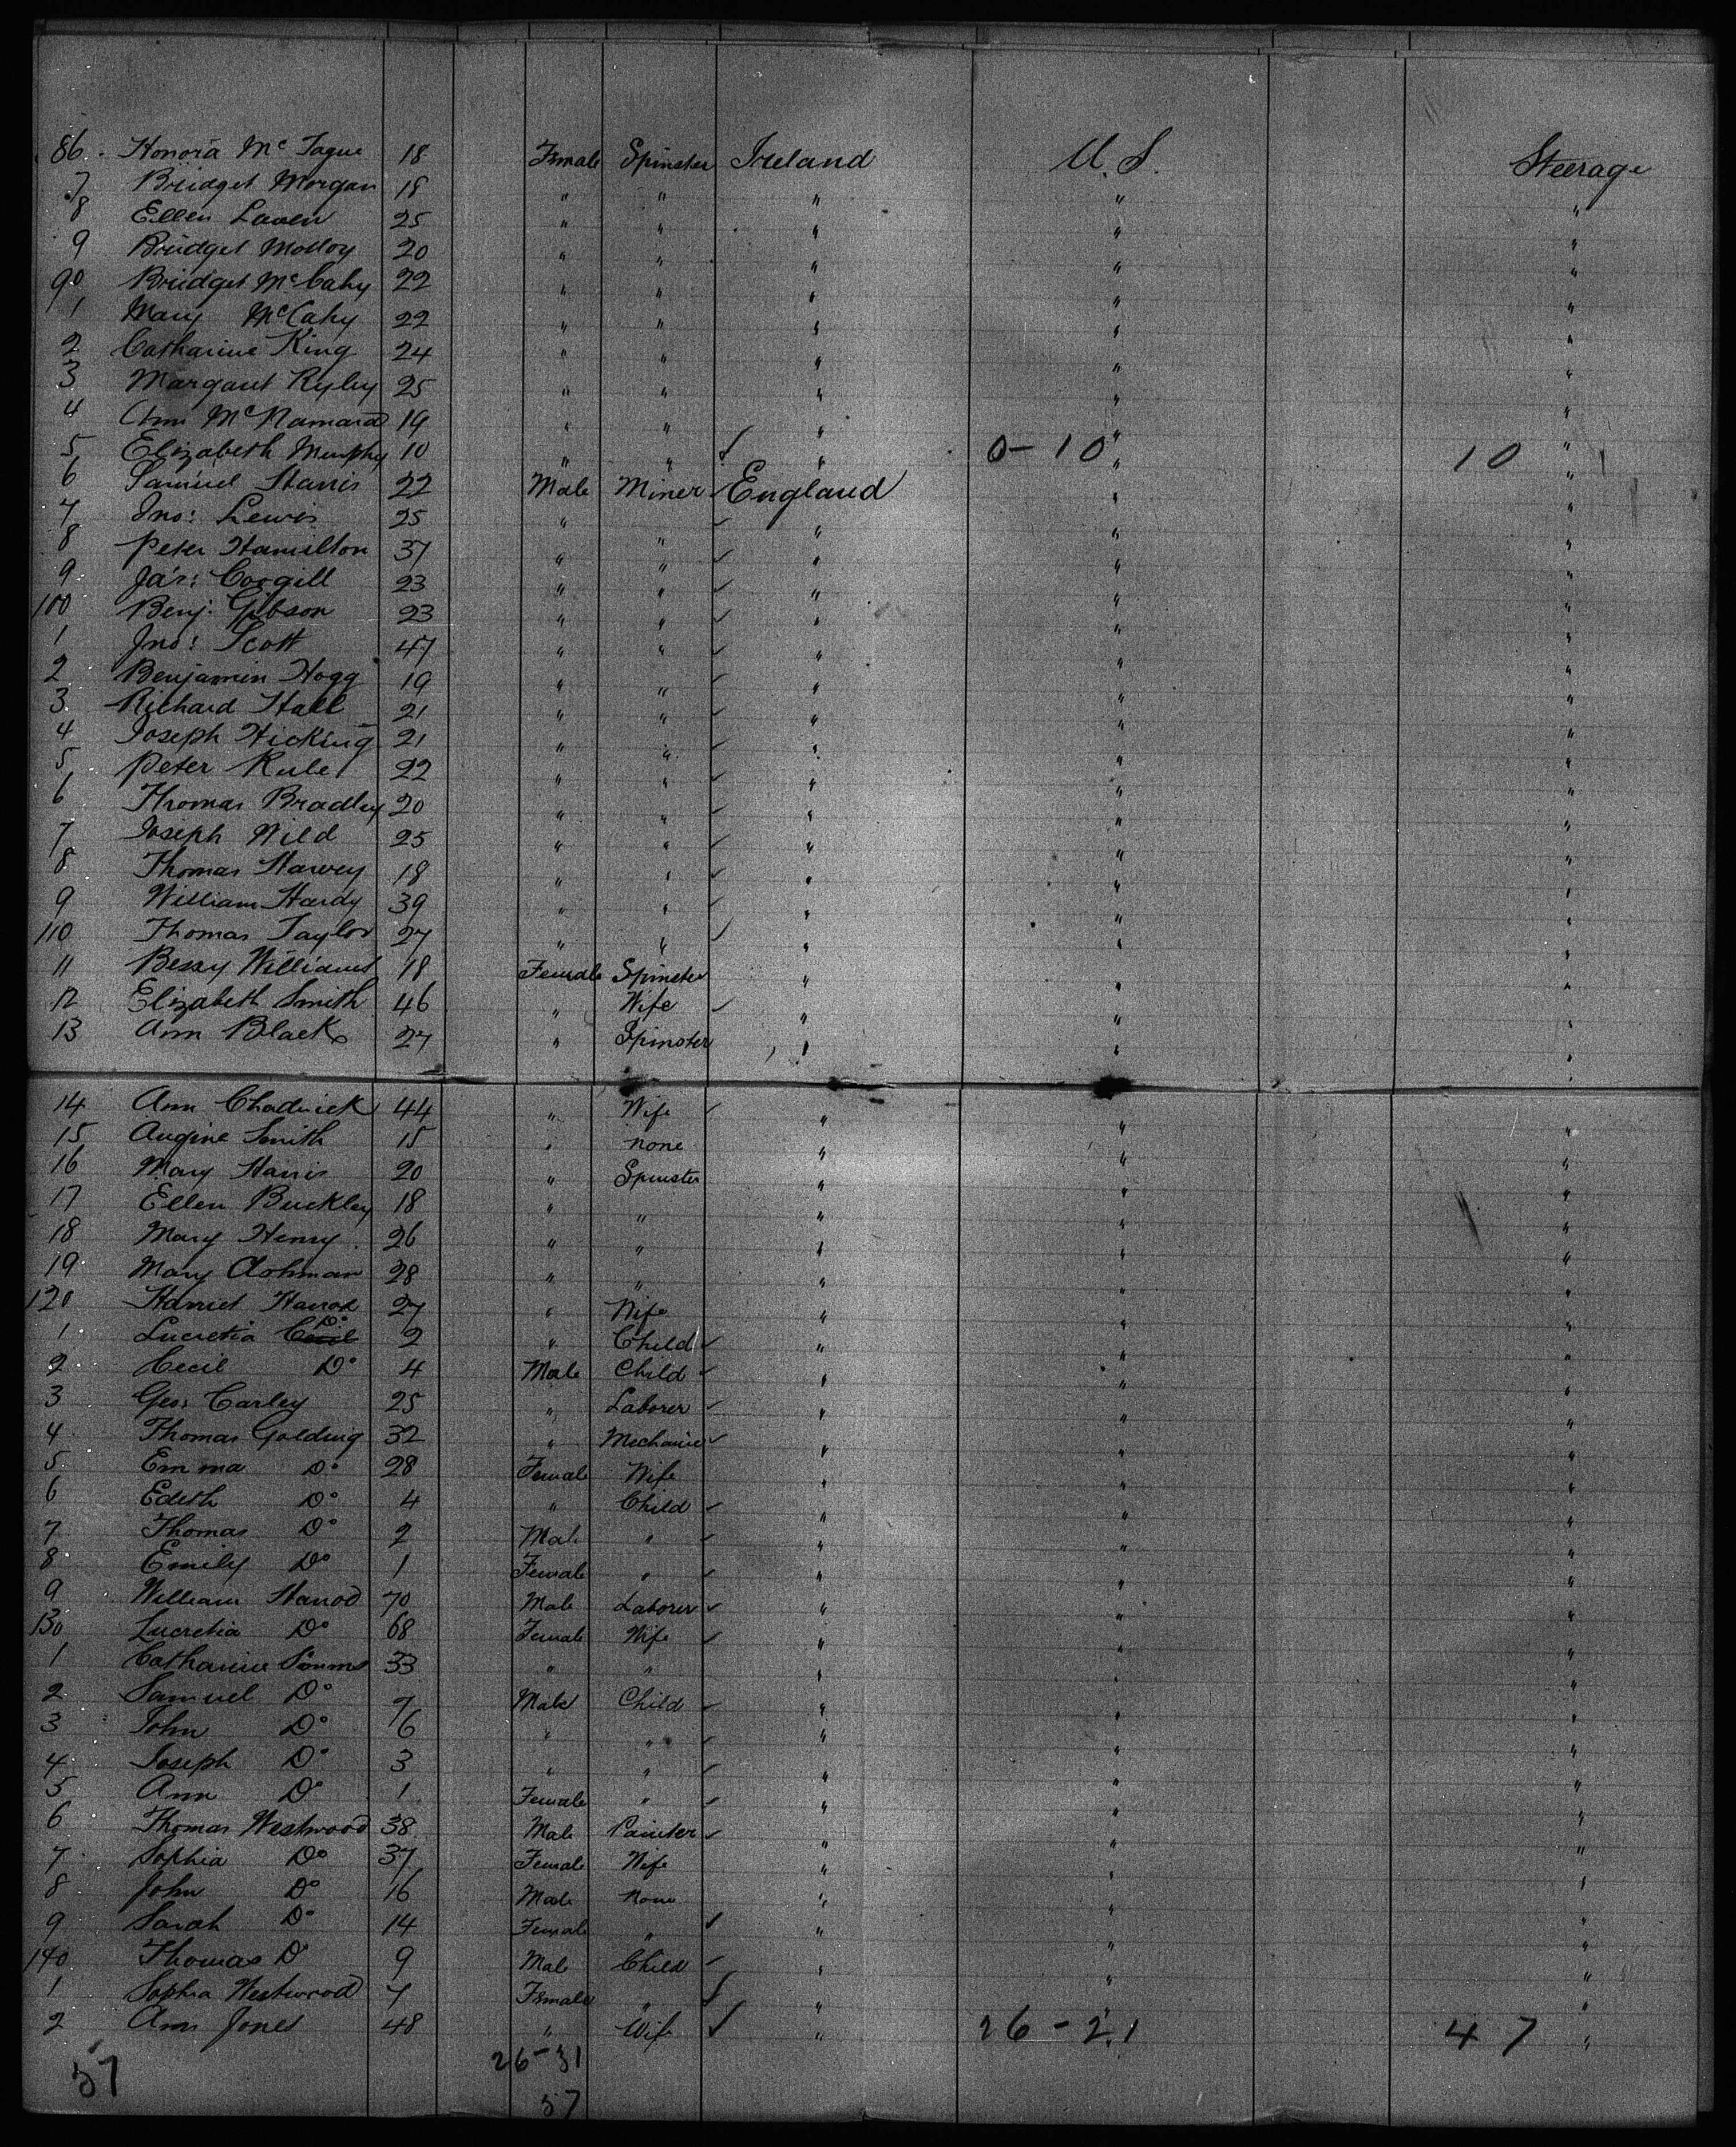 86. Honora Mc Tague 18 Female Spinster Ireland U.S. Steerage
7 Bridget Morgan 18 " " " " "
8 Ellen 25 " " " " "
9 Bridget Molloy 20 " " " " "
90 Bridget McCahy 22 " " " " "
1 Mary McCahy 22 " " " " "
2 Catharine King 24 " " " " "
3 Margaret Ryley 25 " " " " "
4 Ann McNamara 19 " " " " "
5 Elizabeth Murphy 10 " " " 0-10 " 10 "
6 Samuel Harris 22 Male Miner England " "
7 Jno: Lewis 25 " " " " "
8 Peter Hamilton 37 " " " " "
9 Jas: Corgill 23 " " " " "
100 Benj. Gibson 23 " " " " "
1 Jno: Scott 47 " " " " "
2 Benjamin Hogg 19 " " " " "
3 Richard Hall 21 " " " " "
4 Joseph Hicking 21 " " " " "
5 Peter Rule 22 " " " " "
6 Thomas Bradley 20 " " " " "
7 Joseph Wild 25 " " " " "
8 Thomas Harvey 18 " " " " "
9 William Hardy 39 " " " " "
110 Thomas Taylor 27 " " " " "
11 Bessy Williams 18 Female Spinster " " "
12 Elizabeth Smith 46 " Wife " " "
13 Ann Black 27 " Spinster " " "
14 Ann Chadwick 44 " Wife " " "
15 Augine Smith 15 " none " " "
16 Mary Harris 20 " Spinster " " "
17 Ellen Buckley 18 " " " " "
18 Mary Henry 26 " " " " "
19 Mary 28 " " " " "
120 Harriet Harrod 27 " Wife " " "
1 Lucretia Cecil Do 2 " Child " " "
2 Cecil Do 4 Male Child " " "
3 Geo: Carley 25 " Laborer " " "
4 Thomas Golding 32 " Mechanic " " "
5 Emma Do 28 Female Wife " " "
6 Edith Do 4 " Child " " "
7 Thomas Do 2 Male " " " "
8 Emily Do 1 Female " " " "
9 William Harrod 70 Male Laborer " " "
130 Lucretia Do 68 Female Wife " " "
1 Catharine 33 " " " " "
2 Samuel Do 7 Male Child " " "
3 John Do 6 " " " " "
4 Joseph Do 3 " " " " "
5 Ann Do 1 Female " " " "
6 Thomas Westwood 38 Male Painter " " "
7 Sophia Do 37 Female Wife " " "
8 John Do 16 Male None " " "
9 Sarah Do 14 Female " " " "
140 Thomas Do 9 Male Child " " "
1 Sophia Westwood 7 Female " " " "
2 Ann Jones 48 " Wife " 26-21 " 47 "
57 26-31
57